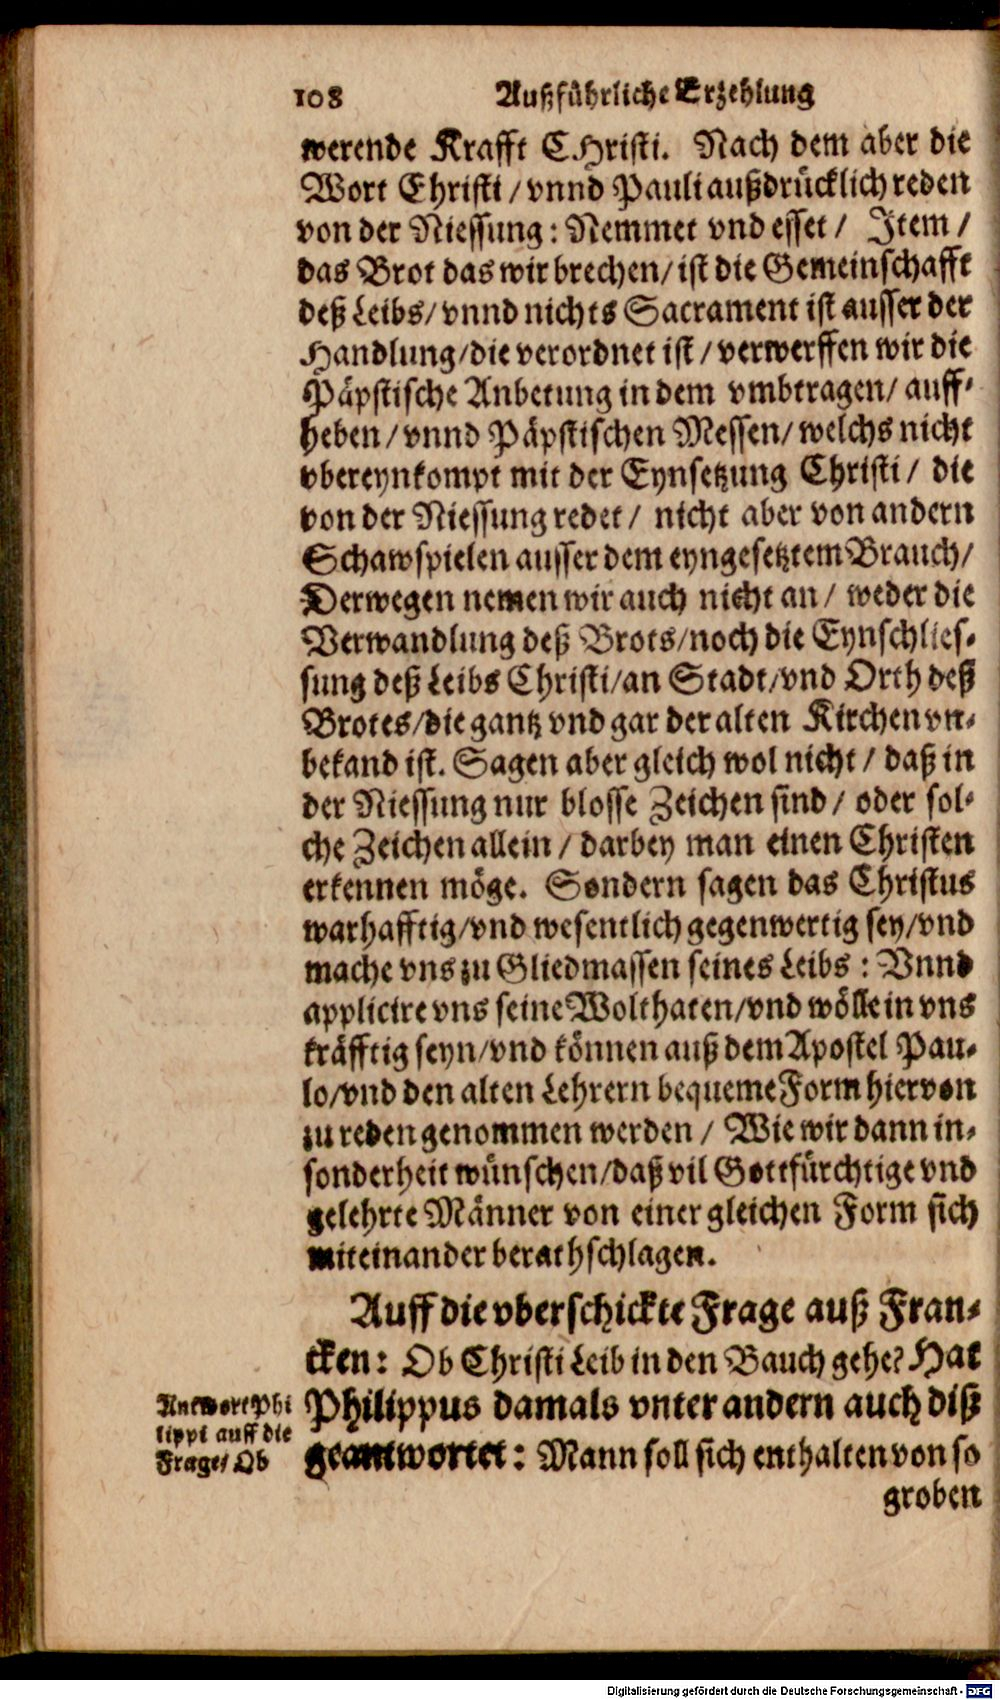 108 Außführliche Erzehlung
werende Krafft C.Hristi. Nach dem aber die
Wort Christi / vnnd Pauli außdrücklich reden
von der Niessung: Nemmet vnd esset / Item /
das Brot das wir brechen / ist die Gemeinschafft
deß Leibs / vnnd nichts Sacrament ist ausser der
Handlung / die verordnet ist / verwerffen wir die
Päpstische Anbetung in dem vmbtragen / auff-
heben / vnnd Päpstischen Messen / welchs nicht
vbereynkompt mit der Eynsetzung Christi / die
von der Niessung redet / nicht aber von andern
Schawspielen ausser dem eyngesetztem Brauch /
Derwegen nemen wir auch nicht an / weder die
Verwandlung deß Brots / noch die Eynschlies-
sung deß Leibs Christi / an Stadt / vnd Orth deß
Brotes / die gantz vnd gar der alten Kirchen vn-
bekand ist. Sagen aber gleich wol nicht / daß in
der Niessung nur blosse Zeichen sind / oder sol-
che Zeichen allein / darbey man einen Christen
erkennen möge. Sondern sagen das Christus
warhafftig / vnd wesentlich gegenwertig sey / vnd
mache vns zu Gliedmassen seines Leibs: Vnnd
applicire vns seine Wolthaten / vnd wölle in vns
kräfftig seyn / vnd können auß dem Apostel Pau-
lo / vnd den alten Lehrern bequeme Form hiervon
zu reden genommen werden / Wie wir dann in-
sonderheit wünschen / daß vil Gottfürchtige vnd
gelehrte Männer von einer gleichen Form sich
miteinander berathschlagen.
Auff die vberschickte Frage auß Fran-
cken: Ob Christi Leib in den Bauch gehe? Hat
Philippus damals vnter andern auch diß
geantwortet: Mann soll sich enthalten von so
groben
Antwort Phi
lippi auff die
Frage / Ob
Digitalisierung gefördert durch die Deutsche Forschungsgemeinschaft - DFG